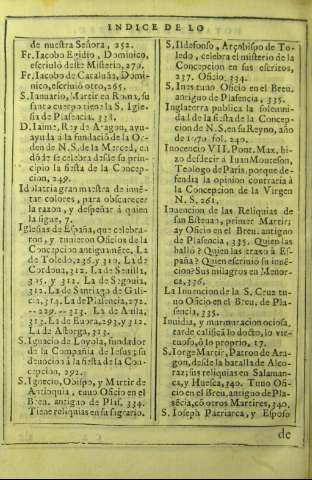 INDICE DE LO
de nuestra Señora, 252.
Fr. Iacobo Egidio, Dominico,
escriuiò deste Misterio, 279.
Fr. Iacobo de Cataluña, Domi-
nico, escriuiò otro, 265.
S. Ianuario, Martir en Roma, su
santo cuerpo tiene la S. Igle-
sia de Plasencia. 338.
D. Iaime, Rey de Aragon, ayu-
ayuda à la fundaciò de la Or-
den de N. S. de la Merced, en
dòde se celebra desde su prin-
cipio la fiesta de la Concep-
cion, 249.
Idolatria gran maestra de inuè-
tar colores, para obscurecer
la razon, y despeñar à quien
la sigue, 7.
Iglesias de España, que celebra-
ron, y tuuieron Oficio de la
Concepcion antiguamète. La
de Toledo, 236. y 310. La de
Cordoua, 312. La de Seuilla,
315. y 312. La de Segouia,
312. La de Santiago de Gali-
cia, 314. La de Plasencia, 272.
-- 229. -- 313. La de Auila,
313. La de Euora, 293. y 312.
La de Astorga, 313.
S. Ignacio de Loyola, fundador
de la Compañia de Iesus; su
deuocion à la fiesta de la Con-
cepcion, 292.
S. Ignecio, Obispo, y Martir de
Antioquia, tuuo Oficio en el
Breu. antiguo de Plas. 334.
Tiene reliquias en su sagrario.
S. Ildefonso, Arçobispo de To-
ledo, celebra el misterio de la
Concepcion en sus escritos,
237. Oficio, 334.
S. Ines tuuo Oficio en el Breu.
antiguo de Plasencia, 335.
Inglaterra publica la solemni-
dad de la fiesta de la Concepcion
de N. S. en su Reyno, año
de 1070 fol. 240.
Inocencio VII. Pont. Max. hi-
zo desdecir à Iuan Monteson,
Teologo de Paris, porque de-
fendia la opinion contraria à
la Concepcion de la Virgen
N. S. 261.
Inuencion de las Reliquias de
san Esteuan, primer Martir;
ay Oficio en el Breu. antiguo
de Plasencia, 335. Quien las
hallò? Quien las traxo à Es-
paña? Quien escriuiò su inuè-
cion? Sus milagros en Menor-
ca, 336.
La Inuencion de la S. Cruz tu-
uo Oficio en el Breu. de Pla-
sencia, 335.
Inuidia, y murmuracion ociosa,
tarde calificà lo docto, lo vir-
tuoso, ò lo proprio, 17.
S. Iorge Martir, Patron de Ara-
gon, desde la batalla de Alco-
raz; sus reliquias en Salaman-
ca, y Huesca, 340. Tuuo Ofi-
cio en el Breu. antiguo de Pla-
sècia, cò otros Martires, 340.
S. Ioseph Patriarca, y Esposo
de